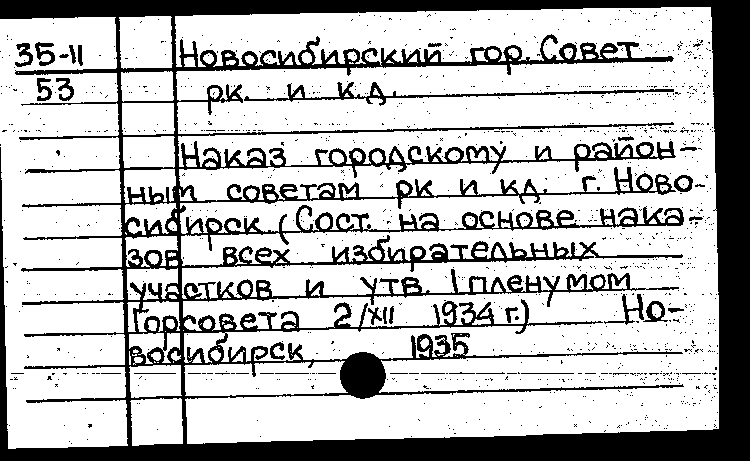 35-11 Новосибирский гор. Совет
53 р.к. и к.д.
Наказ городскому и район-
ным советам рк и кд. г. Ново-
сибирск (Сост. на основе нака-
зов всех избирательных
участков и утв. 1 пленумом
Горсовета 2/XII 1934 г.) Но-
восибирск, 1935